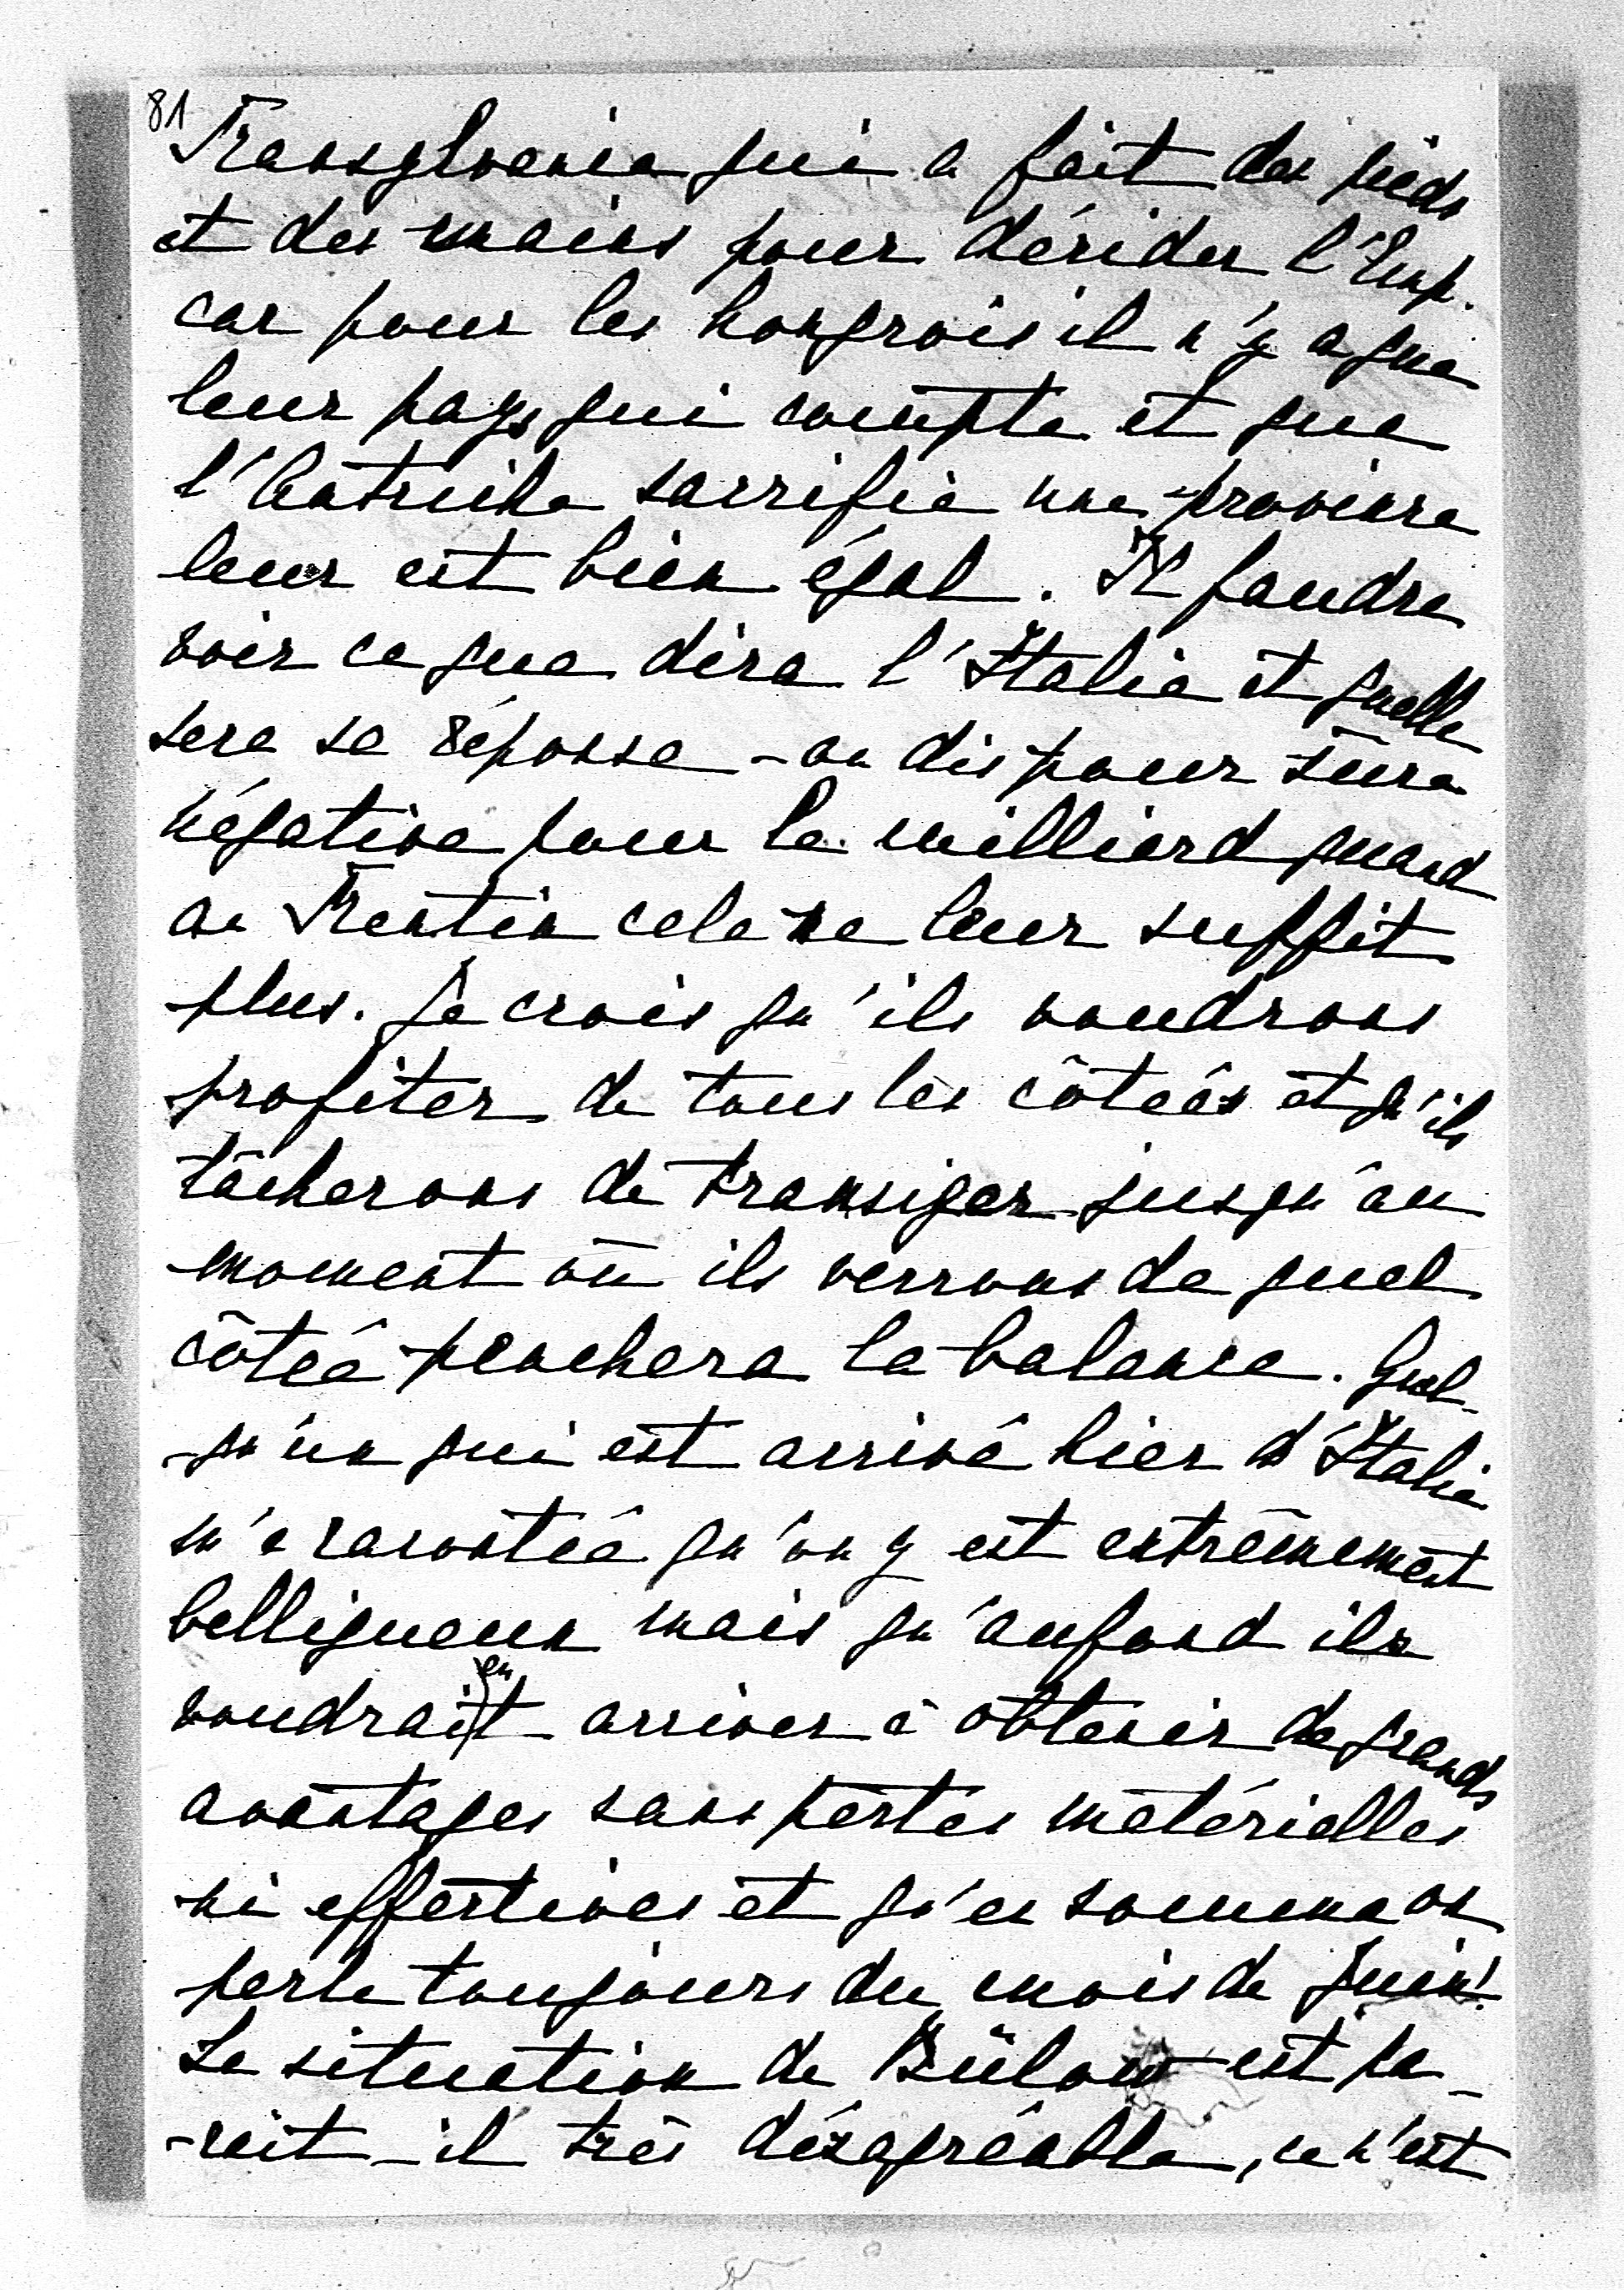 81
Transylvanie qui a fait des pieds
et des mains pour décider l'Emp.
car pour les hongrois il n'y a que
leur pays qui compte et que
l'Autriche sacrifie une province
leur est bien égal. Il faudra
voir ce que dira l'Italie et quelle
sera sa réponse - on dis pour sûre
négative pour le milliard quand
au Trentin cela ne leur suffit
plus. Je crois qu'ils voudrons
profiter de tous les côteés et qu'ils
tâcherons de transiger jusqu'au
moment où ils verrons de quel
côteé penchera la balance. Quel-
-qu'un qui est arrivé hier d'Italie
m'a raconteé qu'on y est extrêmement
belliqueux mais qu'aufond ils
voudrait en arriver à obtenir de grands
avantages sans pertes matérielles
ni effectives et qu'en somme on
parle toujours du mois de Juin!
La situation de Bülow est pa-
-rait-il très désagréable, ce n'est